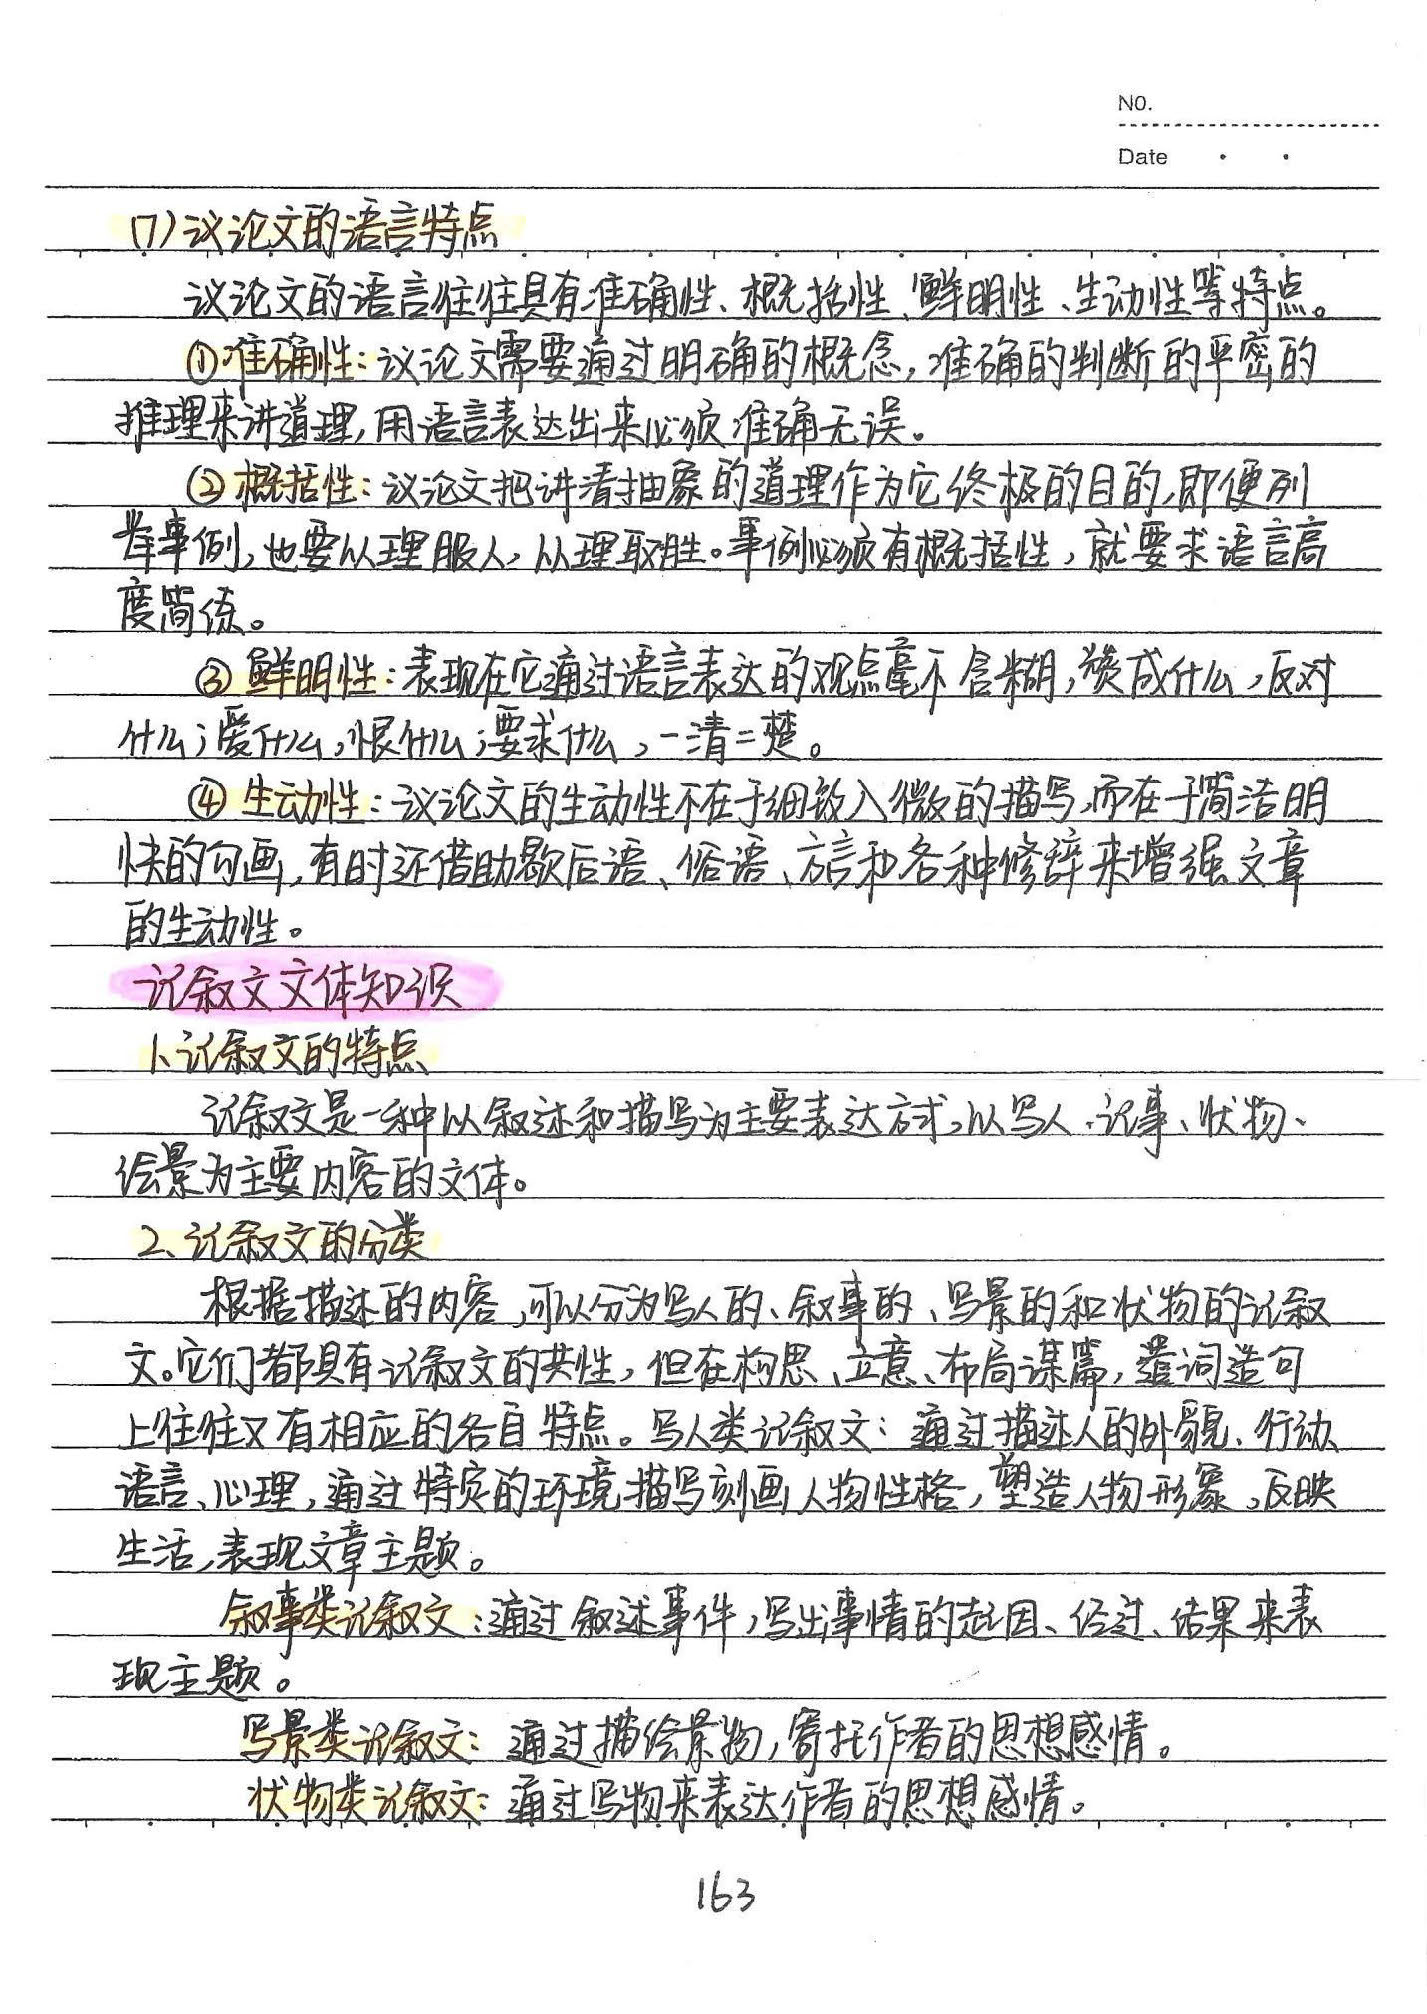 NO.
Date
(7)议论文的语言特点
议论文的语言往往具有准确性、概括性、鲜明性、生动性等特点。
①准确性:议论文需要通过明确的概念,准确的判断的严密的
推理来讲道理,用语言表达出来必须准确无误。
②概括性:议论文把讲清抽象的道理作为它终极的目的,即便列
举事例,也要以理服人,以理取胜。事例必须有概括性,就要求语言高
度简练。
③鲜明性:表现在它通过语言表达的观点毫不含糊,赞成什么,反对
什么;爱什么,恨什么;要求什么,一清二楚。
④生动性:议论文的生动性不在于细致入微的描写,而在于简洁明
快的勾画,有时还借助歇后语、俗语、方言和各种修辞来增强文章
的生动性。
记叙文文体知识
1、记叙文的特点
记叙文是一种以叙述和描写为主要表达方式,以写人、记事、状物、
绘景为主要内容的文体。
2、记叙文的分类
根据描述的内容,可以分为写人的、叙事的、写景的和状物的记叙
文。它们都具有记叙文的共性,但在构思、立意、布局谋篇,遣词造句
上往往又有相应的各自特点。写人类记叙文:通过描述人的外貌、行动、
语言、心理,通过特定的环境描写刻画人物性格,塑造人物形象,反映
生活,表现文章主题。
叙事类记叙文:通过叙述事件,写出事情的起因、经过、结果来表
现主题。
写景类记叙文:通过描绘景物,寄托作者的思想感情。
状物类记叙文:通过写物来表达作者的思想感情。
163